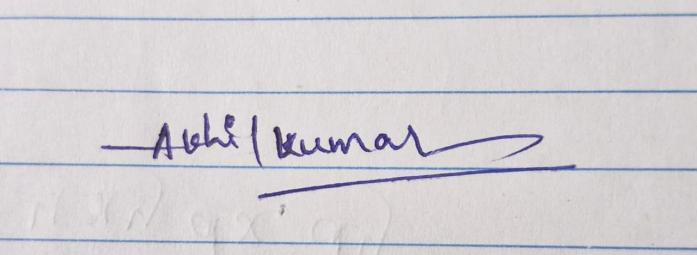 Akhil Kumar